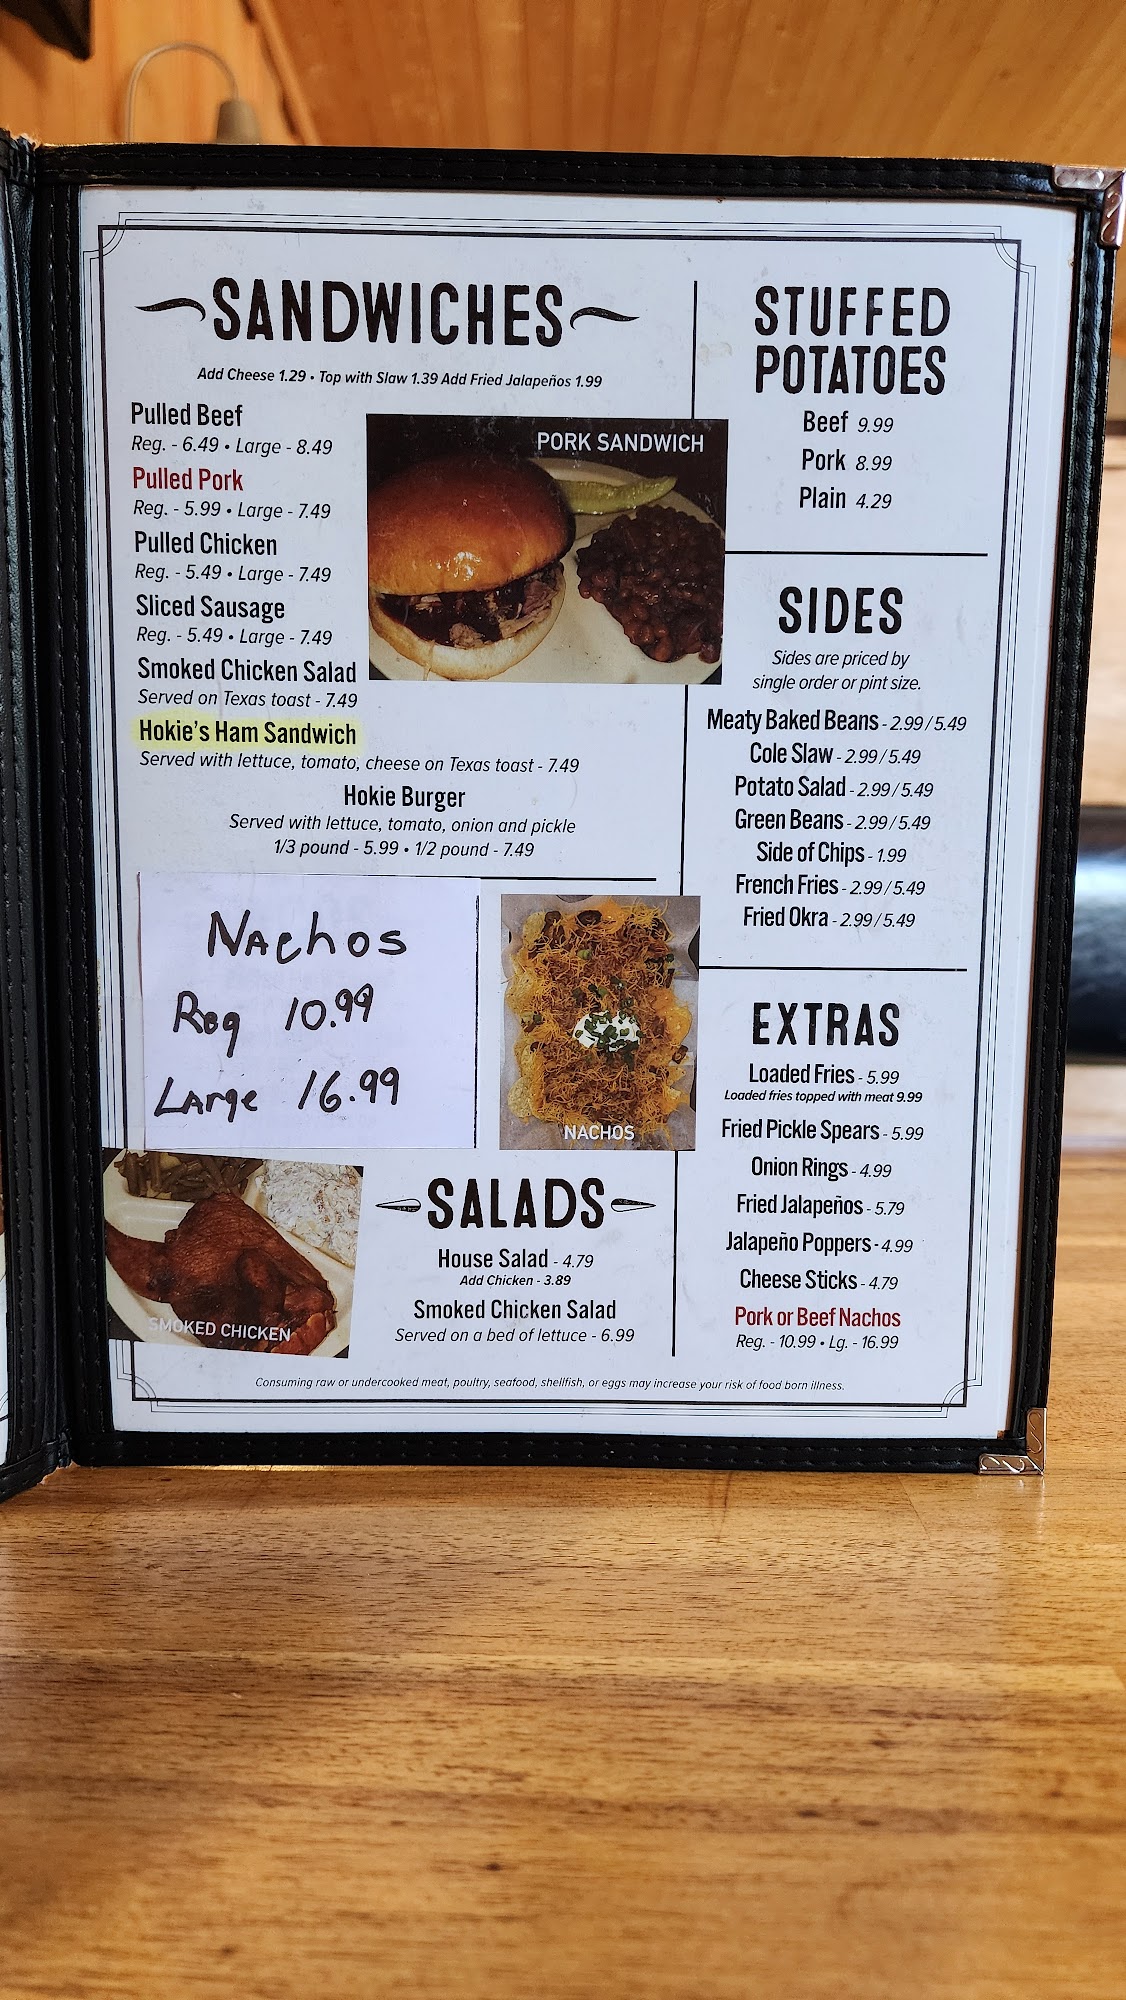 SANDWICHES
Add Cheese 1.29 • Top with Slaw 1.39 Add Fried Jalapeños 1.99
Pulled Beef
Reg. - 6.49 • Large - 8.49
Pulled Pork
Reg. - 5.99 • Large - 7.49
Pulled Chicken
Reg. - 5.49 • Large - 7.49
Sliced Sausage
Reg. - 5.49 • Large - 7.49
Smoked Chicken Salad
Served on Texas toast - 7.49
Hokie's Ham Sandwich
Served with lettuce, tomato, cheese on Texas toast - 7.49
Hokie Burger
Served with lettuce, tomato, onion and pickle
1/3 pound - 5.99 • 1/2 pound - 7.49
PORK SANDWICH
Nachos
Reg 10.99
Large 16.99
NACHOS
SMOKED CHICKEN
SALADS
House Salad - 4.79
Add Chicken - 3.89
Smoked Chicken Salad
Served on a bed of lettuce - 6.99
STUFFED
POTATOES
Beef 9.99
Pork 8.99
Plain 4.29
SIDES
Sides are priced by
single order or pint size.
Meaty Baked Beans - 2.99 / 5.49
Cole Slaw - 2.99 / 5.49
Potato Salad - 2.99 / 5.49
Green Beans - 2.99 / 5.49
Side of Chips - 1.99
French Fries - 2.99 / 5.49
Fried Okra - 2.99 / 5.49
EXTRAS
Loaded Fries - 5.99
Loaded fries topped with meat 9.99
Fried Pickle Spears - 5.99
Onion Rings - 4.99
Fried Jalapeños - 5.79
Jalapeño Poppers - 4.99
Cheese Sticks - 4.79
Pork or Beef Nachos
Reg. - 10.99 • Lg. - 16.99
Consuming raw or undercooked meat, poultry, seafood, shellfish, or eggs may increase your risk of food born illness.